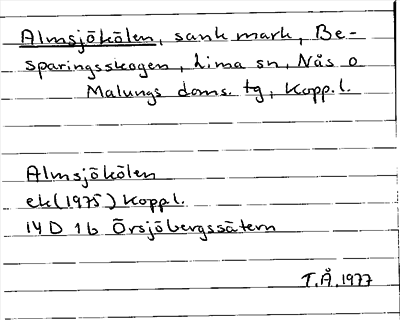 Almsjökölen, sank mark, Be-
sparingsskogen, Lima sn, Nås o
Malungs doms. tg, Kopp.l.
Almsjökölen
ek (1975) Kopp l.
14 D 1b Örsjöbergssätern
T.Å. 1977